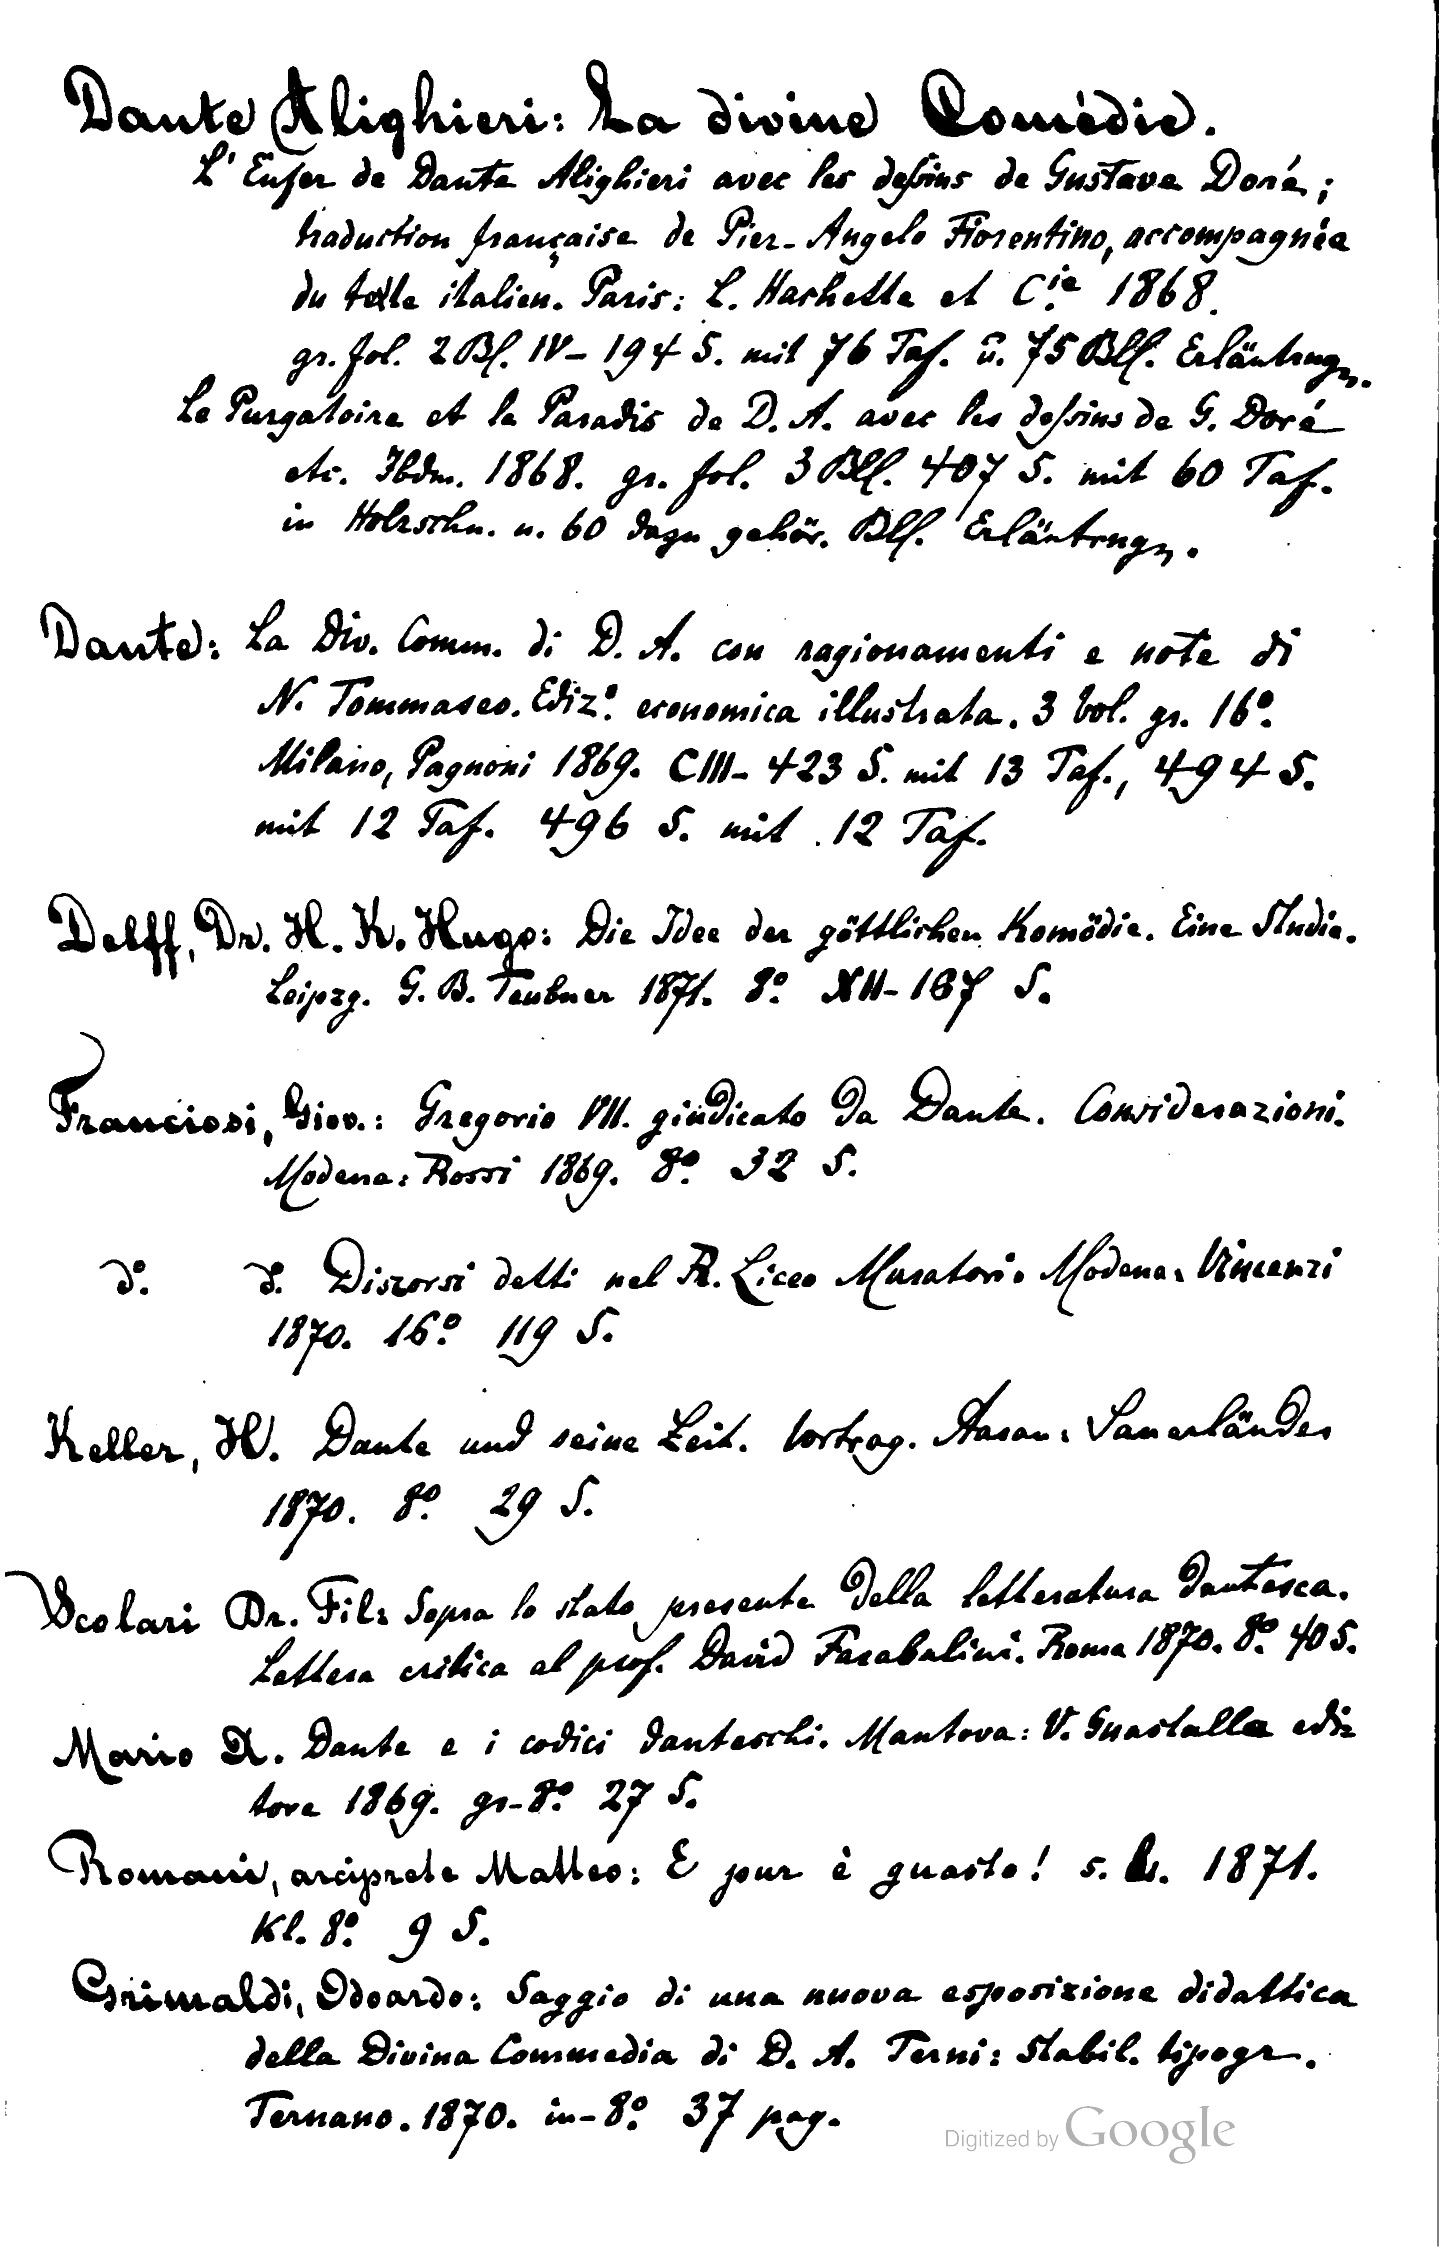 Dante Alighieri: La divine Comédie.
L'Enfer de Dante Alighieri avec les deſsins de Gustave Doré;
traduction française de Pier-Angelo Fiorentino, accompagnée
du texte italien. Paris: L. Hachette et C.ie 1868.
gr. fol. 2 Bl. IV-194 S. mit 76 Taf. u. 75 Bll. Erläutrngn.
Le Purgatoire et le Paradis de D. A. avec les deſsins de G. Doré
etc. Ibdm. 1868. gr. fol. 3 Bll. 407 S. mit 60 Taf.
in Holzschn. u. 60 dazu gehör. Bll. Erläutrngn.
Dante: La Div. Comm. di D. A. con ragionamenti e note di
N. Tommaseo. Ediz.o economica illustrata. 3 Vol. gr. 16o.
Milano, Pagnoni 1869. CIII-423 S. mit 13 Taf., 494 S.
mit 12 Taf. 496 S. mit 12 Taf.
Delff, Dr. H. K. Hugo: Die Idee der göttlichen Komödie. Eine Studie.
Leipzg. G. B. Teubner 1871. 8o. XII-167 S.
Franciosi, Giov.: Gregorio VII. giudicato da Dante. Considerazioni.
Modena: Rossi 1869. 8o. 32 S.
do. do. Discorsi detti nel R. Liceo Muratori. Modena: Vincenzi
1870. 16o. 119 S.
Keller, H. Dante und seine Zeit. Vortrag. Aarau: Sauerländer
1870. 8o. 29 S.
Scolari Dr. Fil: Sopra lo stato presente della letteratura dantesca.
Lettera critica al prof. David Farabulini. Roma 1870. 8o. 40 S.
Mario A. Dante e i codici danteschi. Mantova: V. Guastalla edi-
tore 1869. gr-8o. 27 S.
Romani, arciprete Matteo: E pur è guasto! s. l. 1871.
Kl. 8o. 9 S.
Grimaldi, Odoardo: Saggio di una nuova esposizione didattica
della Divina Commedia di D. A. Terni: Stabil. tipogr.
Ternano. 1870. in-8o. 37 pag.
Digitized by Google